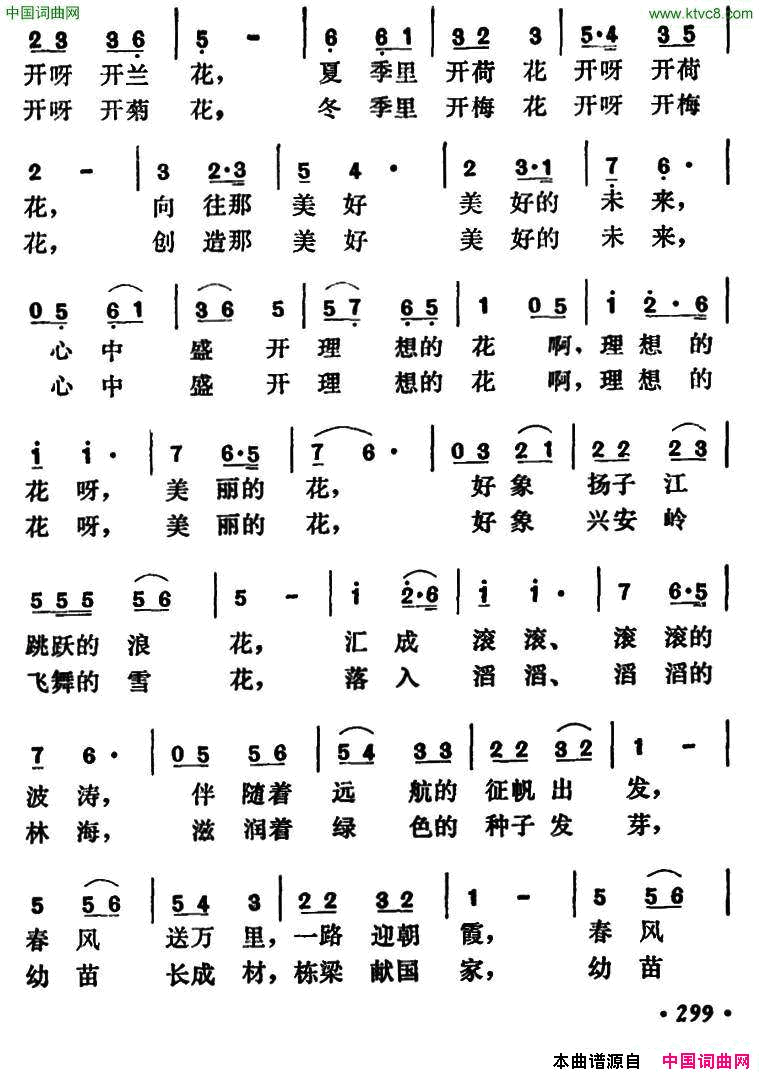 中国词曲网 www.ktvc8.com
2 3 3 6 | 5 - | 6 6 1 | 3 2 3 | 5·4 3 5 |
开呀 开兰 花, 夏 季里 开荷 花 开呀 开荷
开呀 开菊 花, 冬 季里 开梅 花 开呀 开梅
2 - | 3 2·3 | 5 4 · | 2 3·1 | 7 6 · |
花, 向 往那 美 好 美 好的 未 来,
花, 创 造那 美 好 美 好的 未 来,
0 5 6 1 | 3 6 5 | 5 7 6 5 | 1 0 5 | i 2·6 |
心 中 盛 开 理 想的 花 啊, 理 想 的
心 中 盛 开 理 想的 花 啊, 理 想 的
i i · | 7 6·5 | 7 6 · | 0 3 2 1 | 2 2 2 3 |
花 呀, 美 丽的 花, 好 象 扬子 江
花 呀, 美 丽的 花, 好 象 兴安 岭
5 5 5 5 6 | 5 - | i 2·6 | i i · | 7 6·5 |
跳跃的 浪 花, 汇 成 滚 滚、 滚 滚的
飞舞的 雪 花, 落 入 滔 滔、 滔 滔的
7 6 · | 0 5 5 6 | 5 4 3 3 | 2 2 3 2 | 1 - |
波 涛, 伴 随着 远 航的 征帆 出 发,
林 海, 滋 润着 绿 色的 种子 发 芽,
5 5 6 | 5 4 3 | 2 2 3 2 | 1 - | 5 5 6 |
春 风 送万 里, 一路 迎朝 霞, 春 风
幼 苗 长成 材, 栋梁 献国 家, 幼 苗
·299·
本曲谱源自 中国词曲网